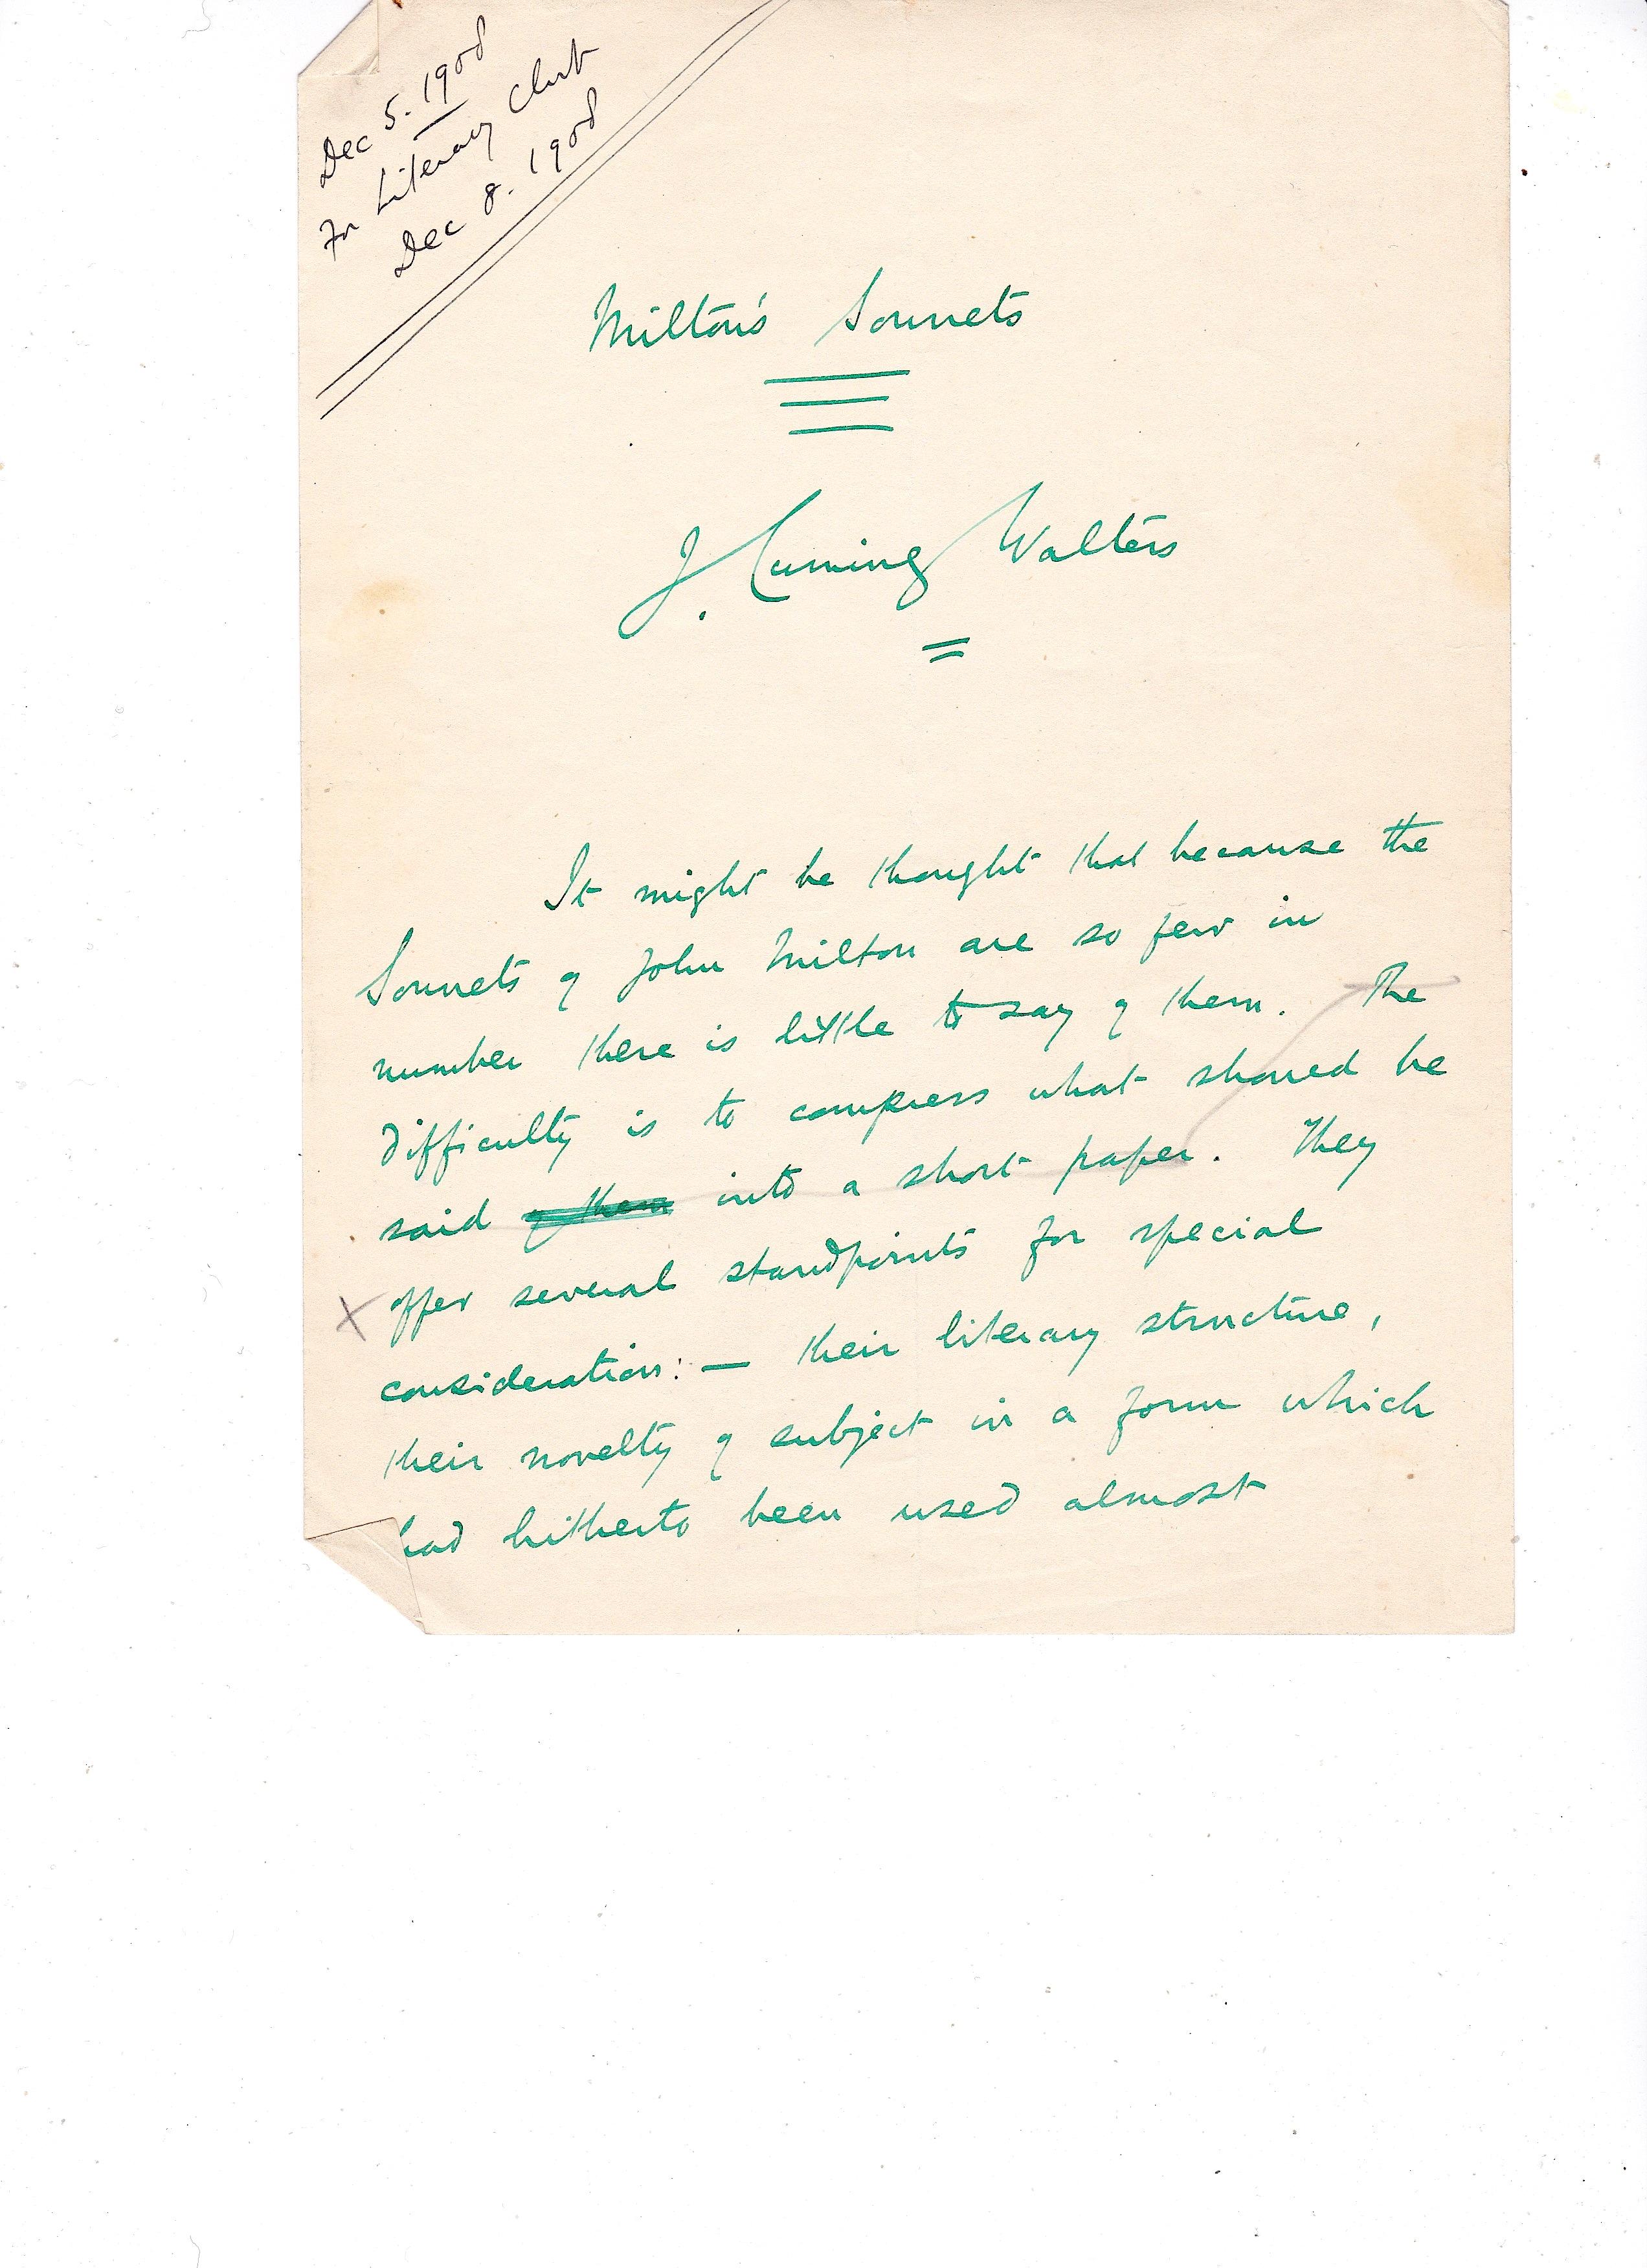 Dec 5. 1908
For Literary Club
Dec 8. 1908
Milton's Sonnets
J. Cuming Walters
It might be thought that because the
Sonnets of John Milton are so few in
number there is little to say of them. The
difficulty is to compress what should be
said of them into a short paper. They
offer several standpoints for special
consideration: — their literary structure,
their novelty of subject in a form which
had hitherto been used almost